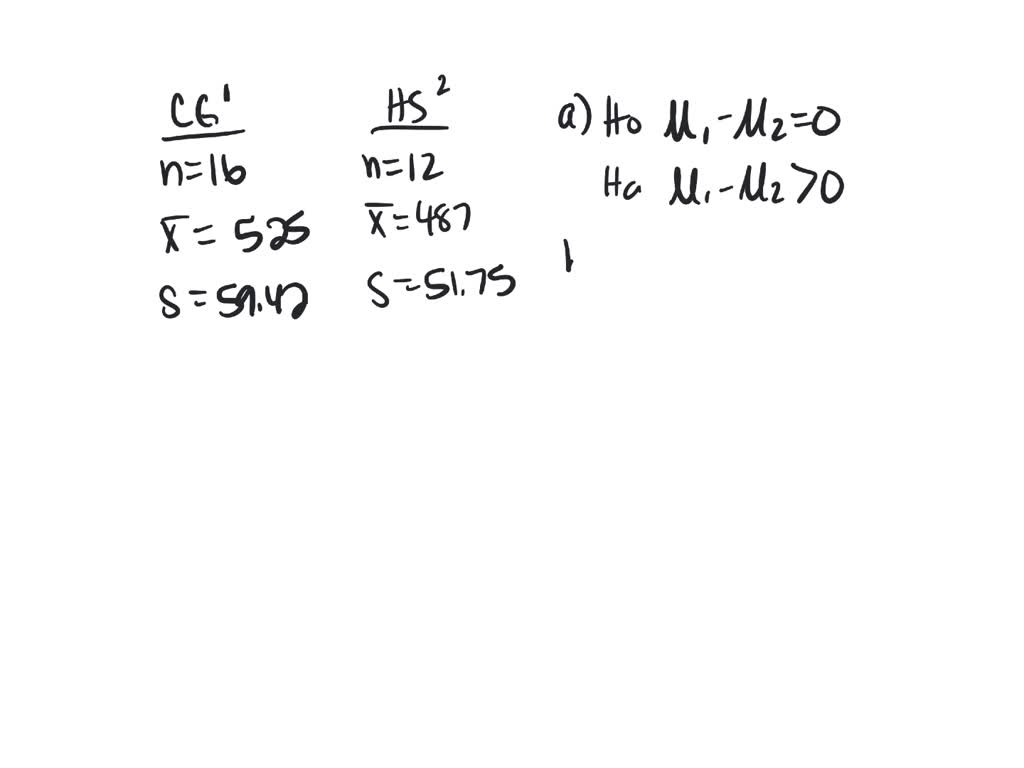 CG¹
n=16
x̄ = 525
S = 59.42
HS²
n=12
x̄ = 487
S = 51.75
a) Ho μ₁-μ₂=0
Ha μ₁-μ₂>0